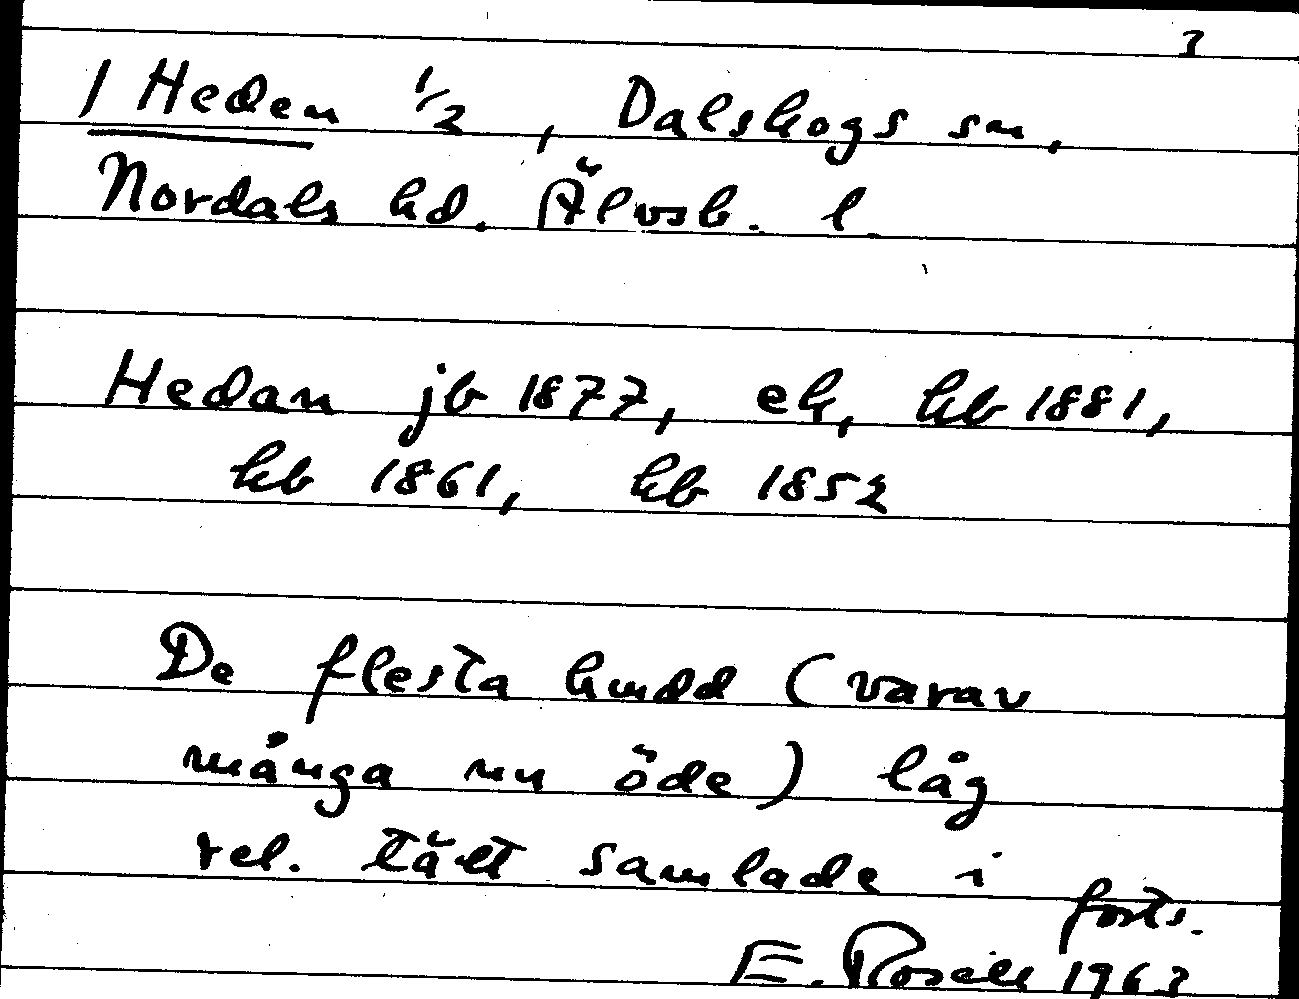 1 Heden 1/2, Dalskogs sn,
Nordals hd. Älvsb. l.
Hedan jb 1877, ek, hb 1881,
hb 1861, hb 1852
De flesta hmdd (varav
många nu öde) låg
rel. tätt samlade i forts.
E. Rosell 1963